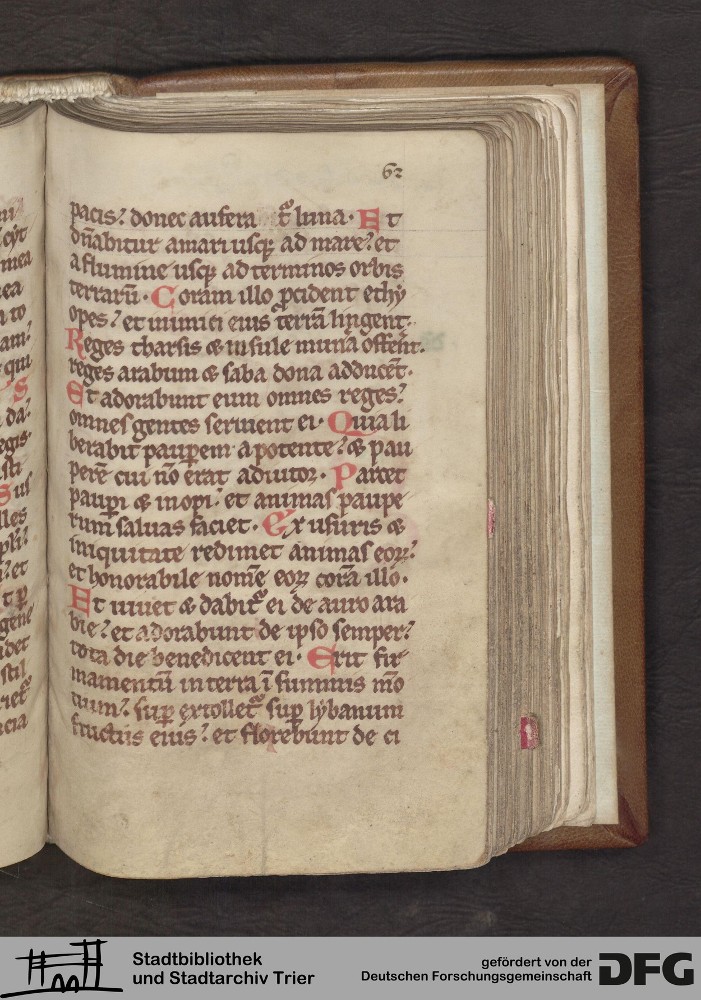 62
pacis? donec aufera t᷑ luna· Et
dn̄abitur amari usq; ad mare? et
a flumine usq; ad terminos orbis
terrarū· Coram illo ꝓcident ethy
opes? et inimici eius terrā lingent·
Reges tharsis & insule munā offer̄t·
reges arabum & saba dona adducēt·
Et adorabunt eum omnes reges?
omnes gentes seruient ei· Quia li
berabit pauꝑem a potente? & pau
perē cui nō erat adiutoꝝ· Parcet
pauꝑi & inopi· et animas paupe
rum saluas faciet· Ex usuris &
iniquitate redimet animas eoꝝ?
et honorabile nomē eoꝝ corā illo·
Et uiuet & dabit᷑ ei de auro ara
bie? et adorabunt de ipso semper?
tota die benedicent ei· Erit fir
mamentū in terra ī summis mō
tium? suꝑ extollet᷑ suꝑ lybanum
fructus eius? et florebunt de ci
eyt
mea
to
am?
qui
S
da?
egis·
Sus
lles
? et
gene
idet
stil
Stadtbibliothek
und Stadtarchiv Trier
gefördert von der
Deutschen Forschungsgemeinschaft
DFG